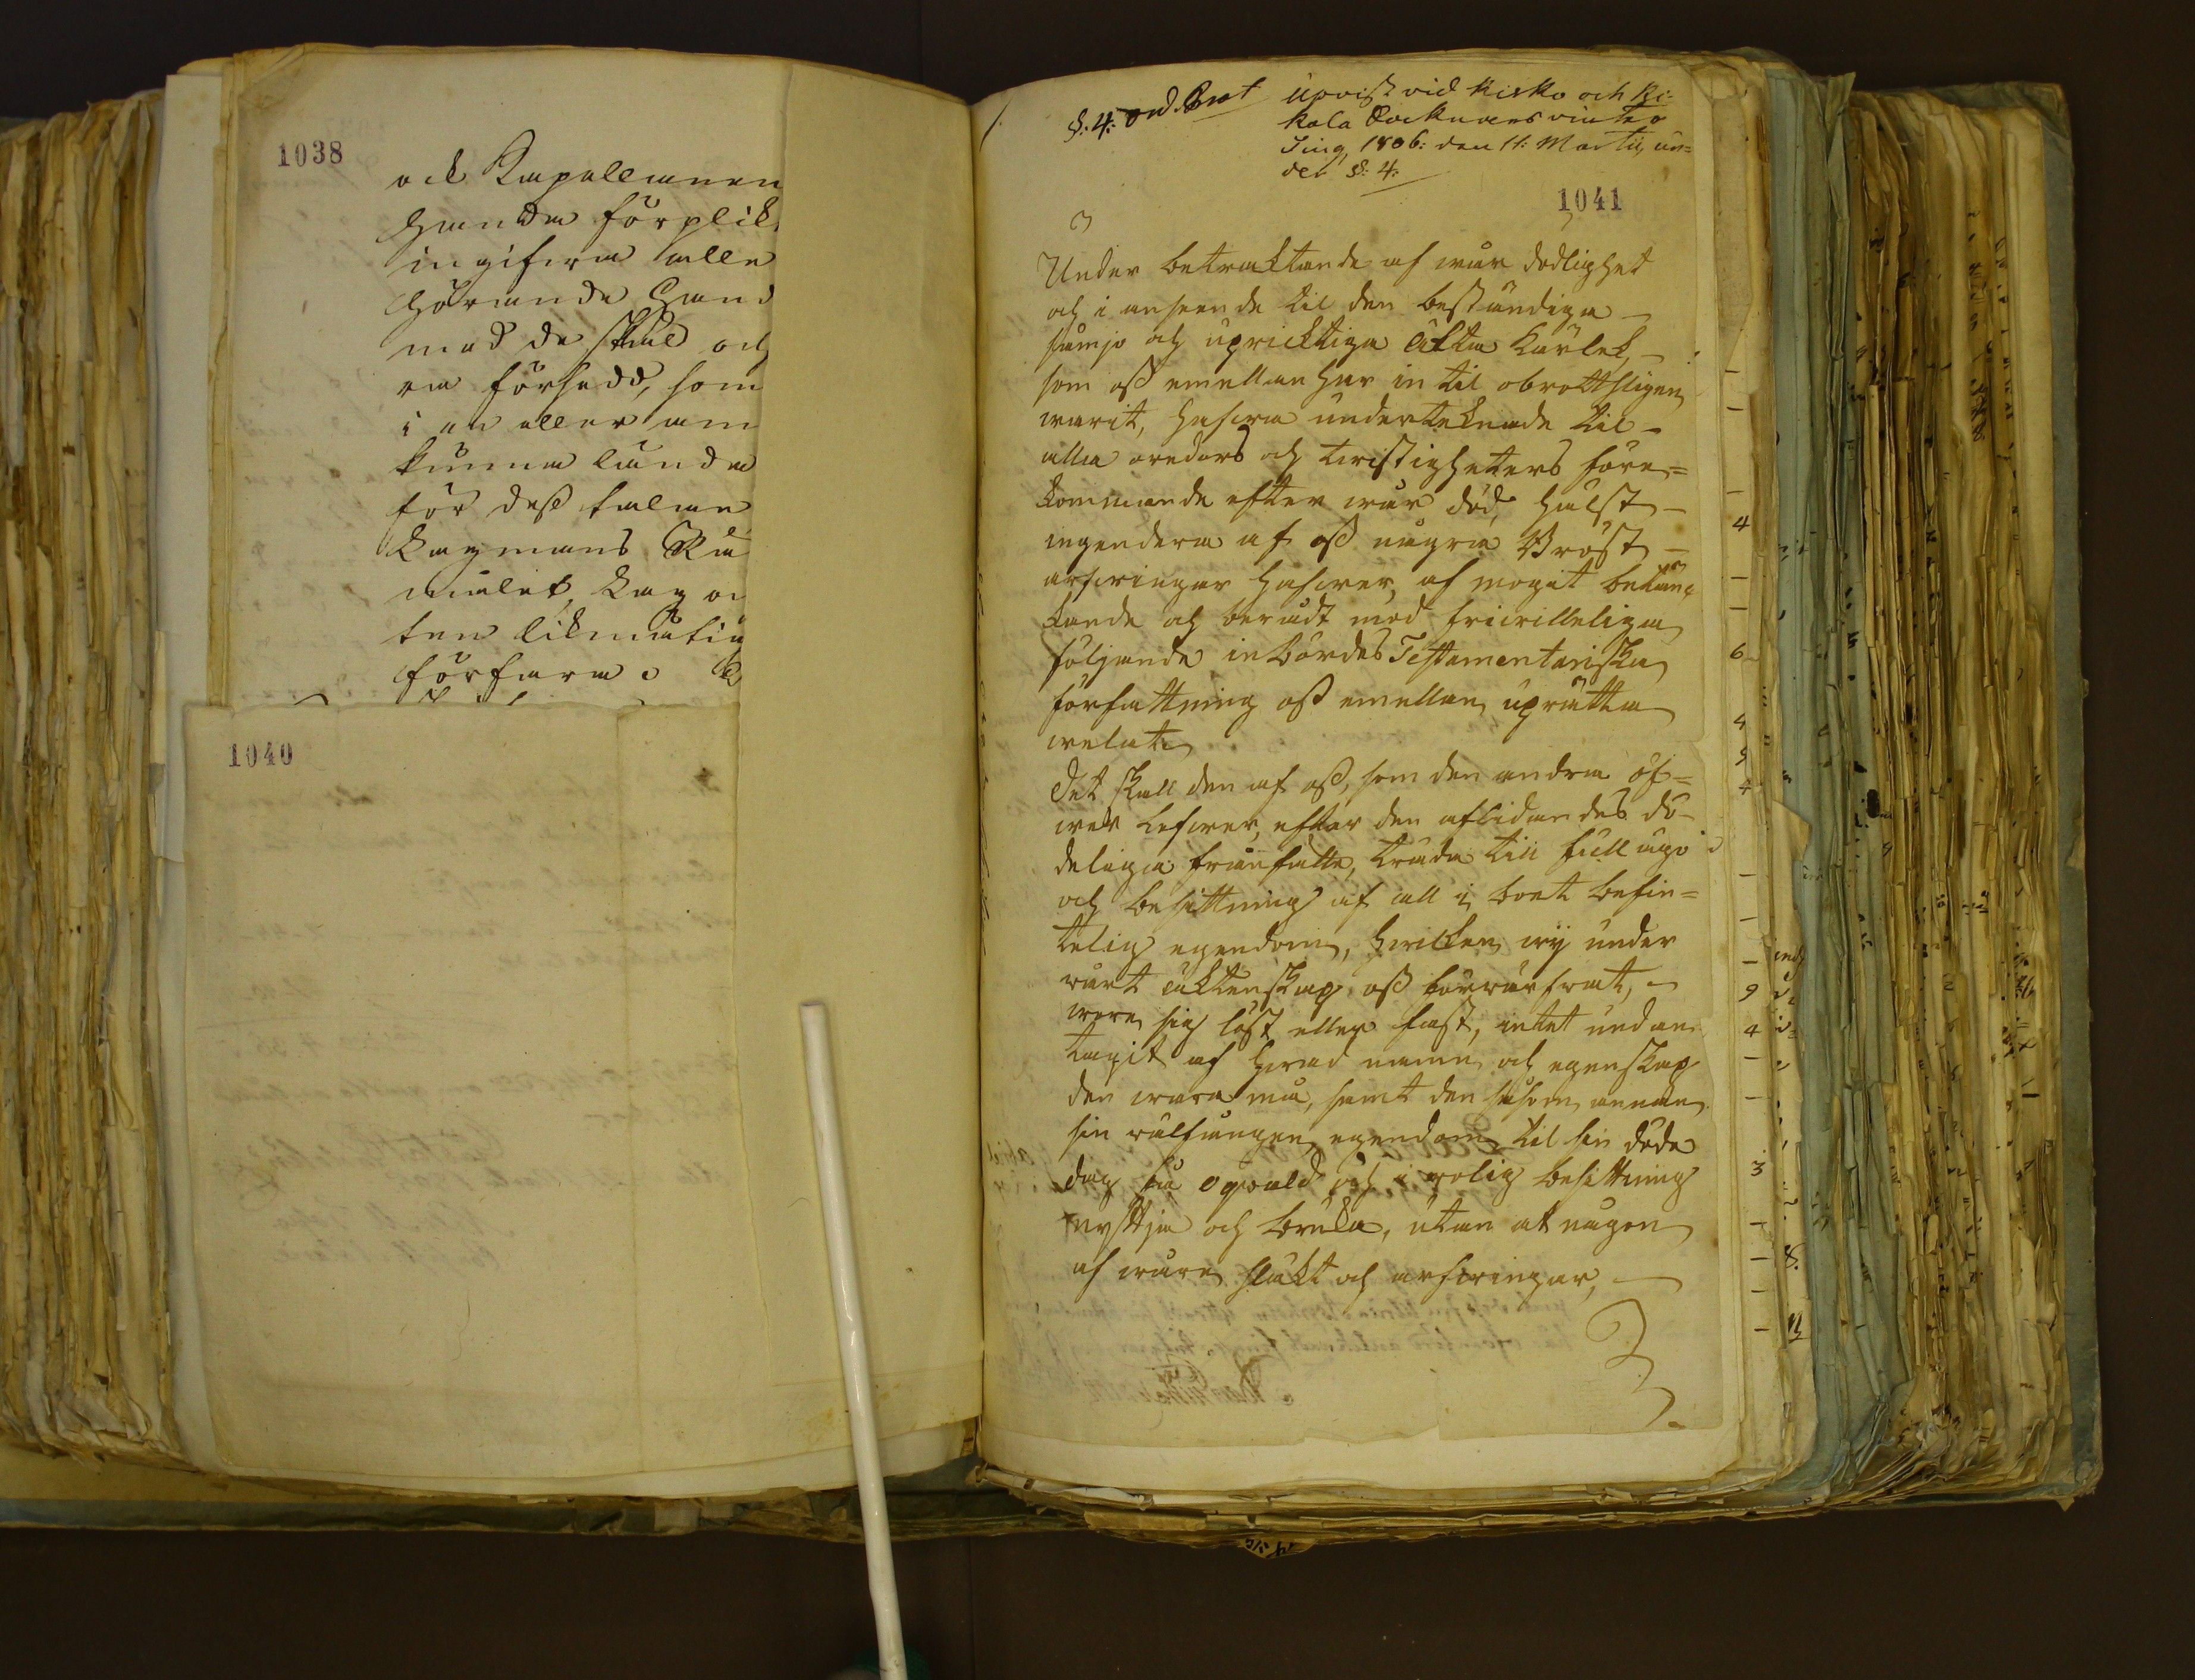 1038
och Kapellanen
hemda förplik
ingifwa alle
hörande hand
med de skiäl och
en försedd, som
i en eller ann
kunna lända
för dess talan
Lagmans Rä
målet, Lag o
ten likmätig
förfara
1040
§. 4. ord. Prot
Upvist vid Kisko och Ki-
kala Socknars vinter
Ting 1806: den 11: Martii, un=
der §. 4.
1041
Under betraktande af wår dödlighet
och i anseende til den beständiga
sämjo och uprichtiga äkta Kärlek,
som oss emellan har in til obrottsligen
warit, hafwa undertecknade til
alla oredors och twistigheters före=
kommande efter wår död, hälst
ingendera af oss några Bröst
arfwingar hafwer, af mogit betän-
kande och berådt mod friwilleligen
följande inbördes Testamentariska
författning oss emellan uprätta
welat.
Det skall den af oss, som den andra öf=
wer lefwer, efter den aflidandes dö-
deliga frånfälle, träda till full ägo
och besittning af all i boet befin=
telig egendom, hwilken wij under
wårt äktenskap oss förwärfwat,
ware sig löst eller fast, intet undan
tagit af hwad namn och egenskap
den wara må, samt den såsom annan
sin wälfången egendom til sin döde
dag få oqvald och i rolig besittning
nyttja och bruka, utan at någon
af wåra släkt och arfwingar,